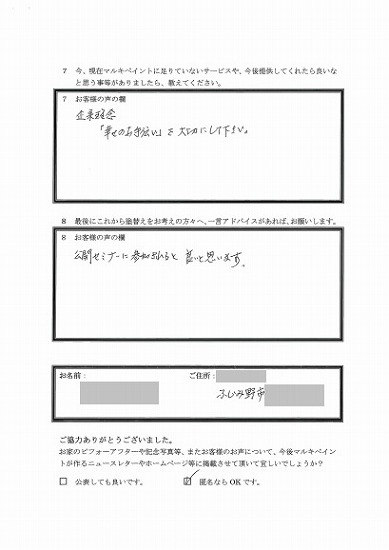 7 今、現在マルキペイントに足りていないサービスや、今後提供してくれたら良いな
と思う事等がありましたら、教えてください。
7 お客様の声の欄
企業理念
「幸せのお手伝い」を大切にして下さい。
8 最後にこれから塗替えをお考えの方々へ、一言アドバイスがあれば、お願いします。
8 お客様の声の欄
公開セミナーに参加されると良いと思います。
お名前: ご住所:
ふじみ野市
ご協力ありがとうございました。
お家のビフォーアフターや記念写真等、またお客様のお声について、今後マルキペイン
トが作るニュースレターやホームページ等に掲載させて頂いて宜しいでしょうか?
□ 公表しても良いです。 ☑ 匿名ならOKです。